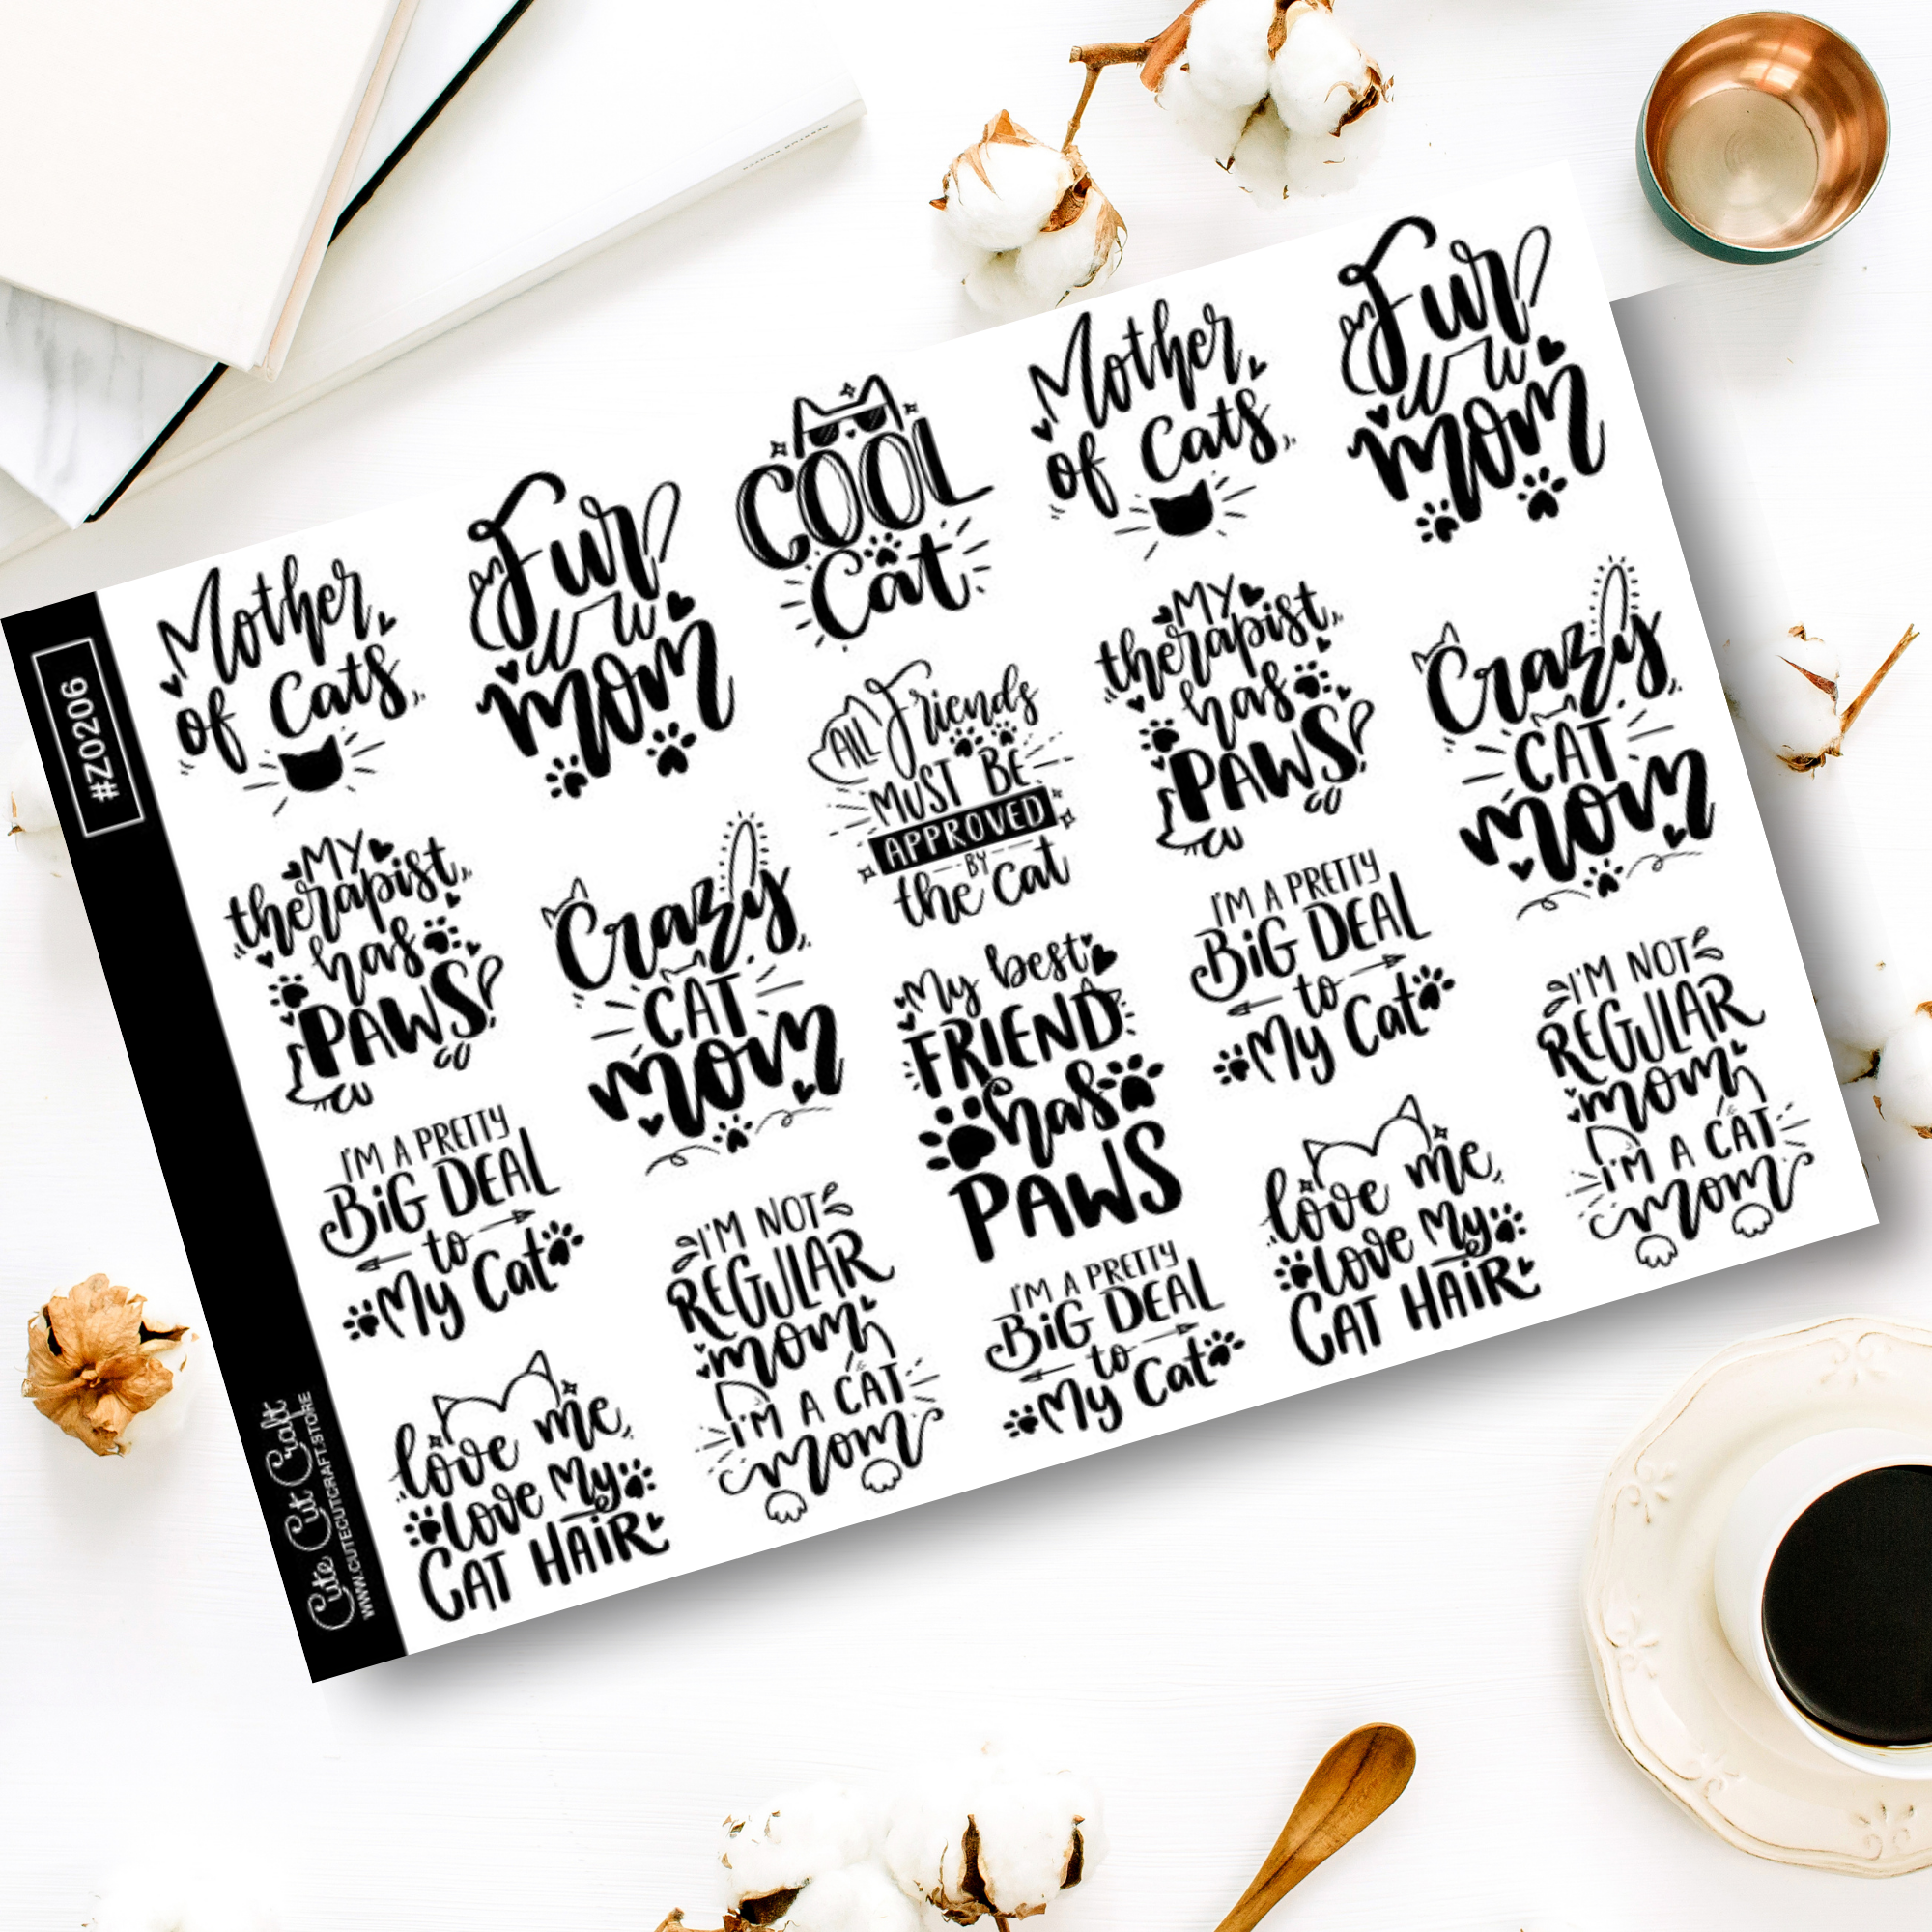 #Z0206
Cute Cut Craft
WWW.CUTECUTCRAFT.STORE
Mother
of Cats
MY
therapist
has
PAWS
I'M A PRETTY
BiG DEAL
to
My Cat
love me
love My
CAT HAiR
Fur
mom
Crazy
CAT
mom
I'M NOT
REGULAR
mom
I'M A CAT
mom
COOL
Cat
ALL Friends
MUST BE
APPROVED
BY
the Cat
My best
FRIEND
has
PAWS
I'M A PRETTY
BiG DEAL
to
My Cat
Mother
of Cats
MY
therapist
has
PAWS
I'M A PRETTY
BiG DEAL
to
My Cat
love me
love My
CAT HAiR
Fur
mom
Crazy
CAT
mom
I'M NOT
REGULAR
mom
I'M A CAT
mom